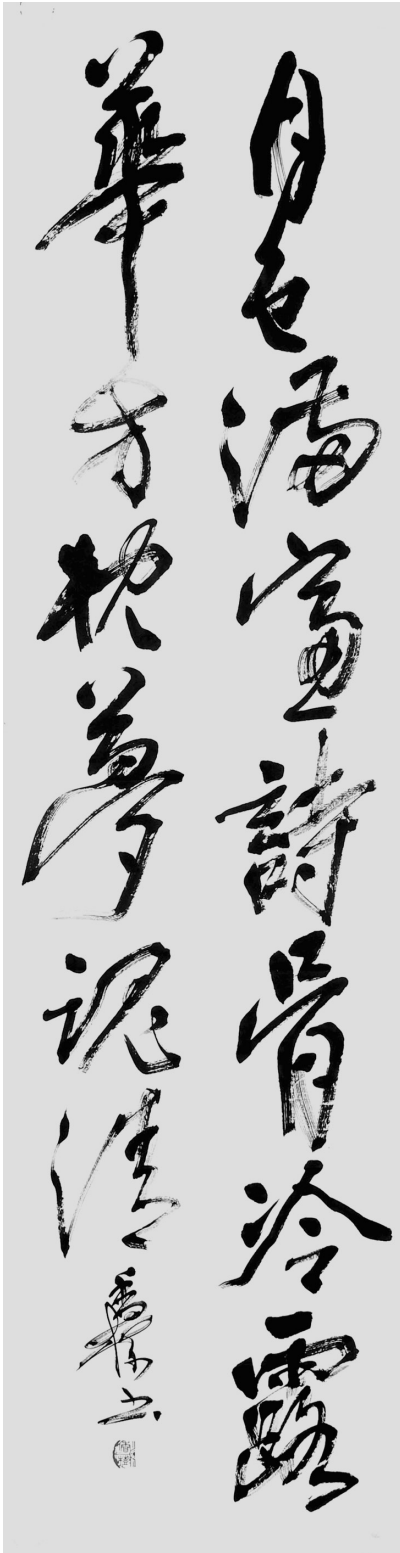 月色滿窗詩骨冷露
華方枕夢魂清
書